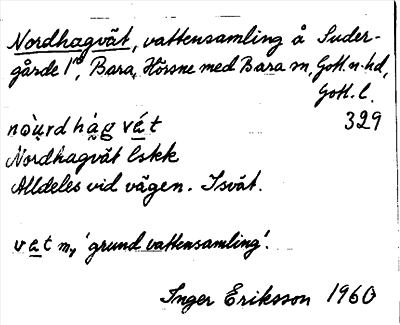 Nordhagvät, vattensamling å Suder-
gårde 1:1, Bara, Hörsne med Bara sn, Gotl. n. hd,
Gotl. l.
329
nòu̯rd hág vát
Nordhagvät Eskk
Alldeles vid vägen. Isvät.
vat m, 'grund vattensamling'.
Inger Eriksson 1960